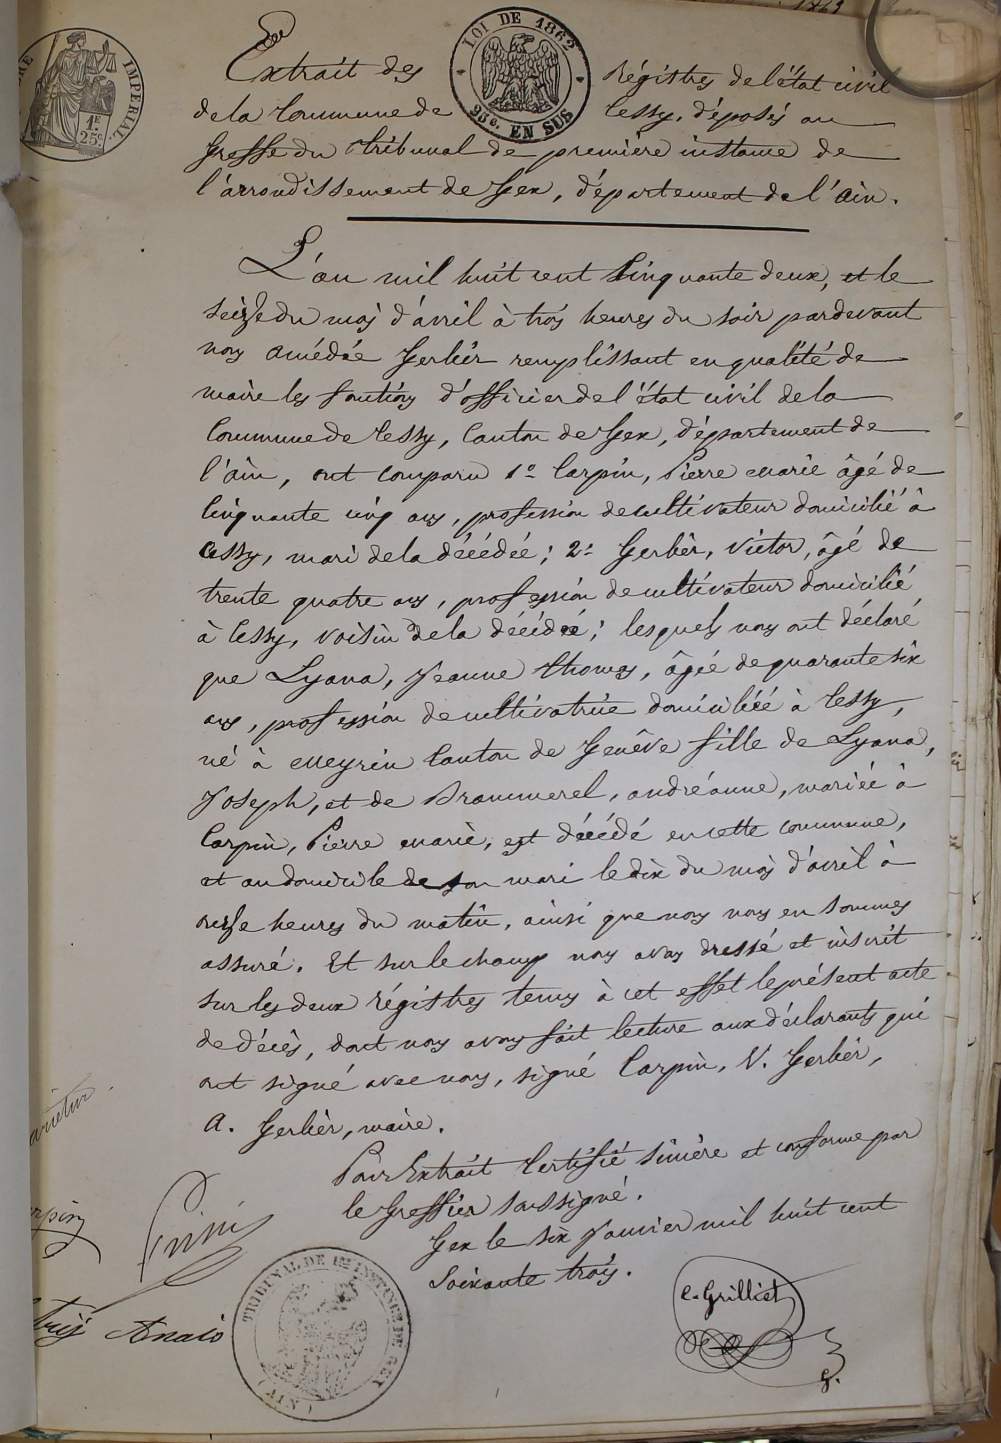 1863
LOI DE 1862
25c. EN SUS
IMPERIAL
1F.
25c.
Extrait des Régistres de l'état civil
de la Commune de Cessy, déposés au
Greffe du tribunal de première instance de
l'arrondissement de Gex, département de l'ain.
L'an mil huit cent Cinquante deux, et le
seize du mois d'avril à trois heures du soir pardevant
nous amédée Gerbier remplissant en qualité de
maire les fonctions d'officier de l'état civil de la
Commune de Cessy, Canton de Gex, département de
l'ain, ont comparu 1º Carpin, Pierre marie âgé de
Cinquante cinq ans, profession de cultivateur domicilié à
Cessy, mari de la décédée; 2º Gerbier, Victor, âgé de
trente quatre ans, profession de cultivateur domicilié
à Cessy, voisin de la décédée; lesquels nous ont déclaré
que Lyana, Jeanne Thomas, âgée de quarante six
ans, profession de cultivatrice domiciliée à Cessy,
né à Meyrin Canton de Genêve fille de Lyana,
Joseph, et de Brammerel, andréanne, mariée à
Carpin, Pierre marie, est décédé en cette commune,
et au domicile de son mari le dix du mois d'avril à
onze heures du matin, ainsi que nous nous en sommes
assuré. Et sur le champ nous avons dressé et inscrit
sur les deux régistres tenus à cet effet le présent acte
de décès, dont nous avons fait lecture aux déclarants qui
ont signé avec nous, signé Carpin, V. Gerbier,
A. Gerbier, maire.
Pour Extrait Certifié sincère et conforme par
le Greffier soussigné.
Gex le six Janvier mil huit cent
soixante trois.
e. Grilliet
G.
TRIBUNAL DE 1ERE INSTANCE DE GEX
(AIN)
Anaïs